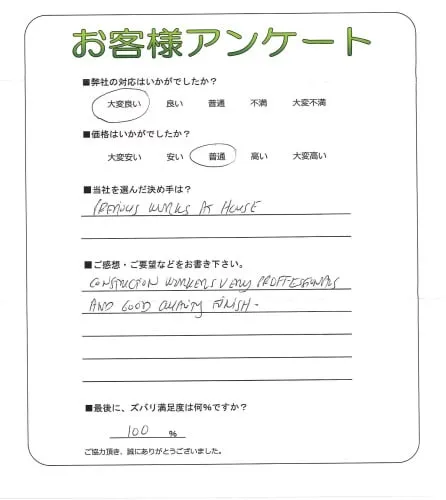 お客様アンケート
■弊社の対応はいかがでしたか?
大変良い 良い 普通 不満 大変不満
■価格はいかがでしたか?
大変安い 安い 普通 高い 大変高い
■当社を選んだ決め手は?
PREVIOUS WORKS AT HOUSE
■ご感想・ご要望などをお書き下さい。
CONSTRUCTION WORKERS VERY PROFFESSIONALS
AND GOOD QUALITY FINISH-
■最後に、ズバリ満足度は何%ですか?
100 %
ご協力頂き、誠にありがとうございました。